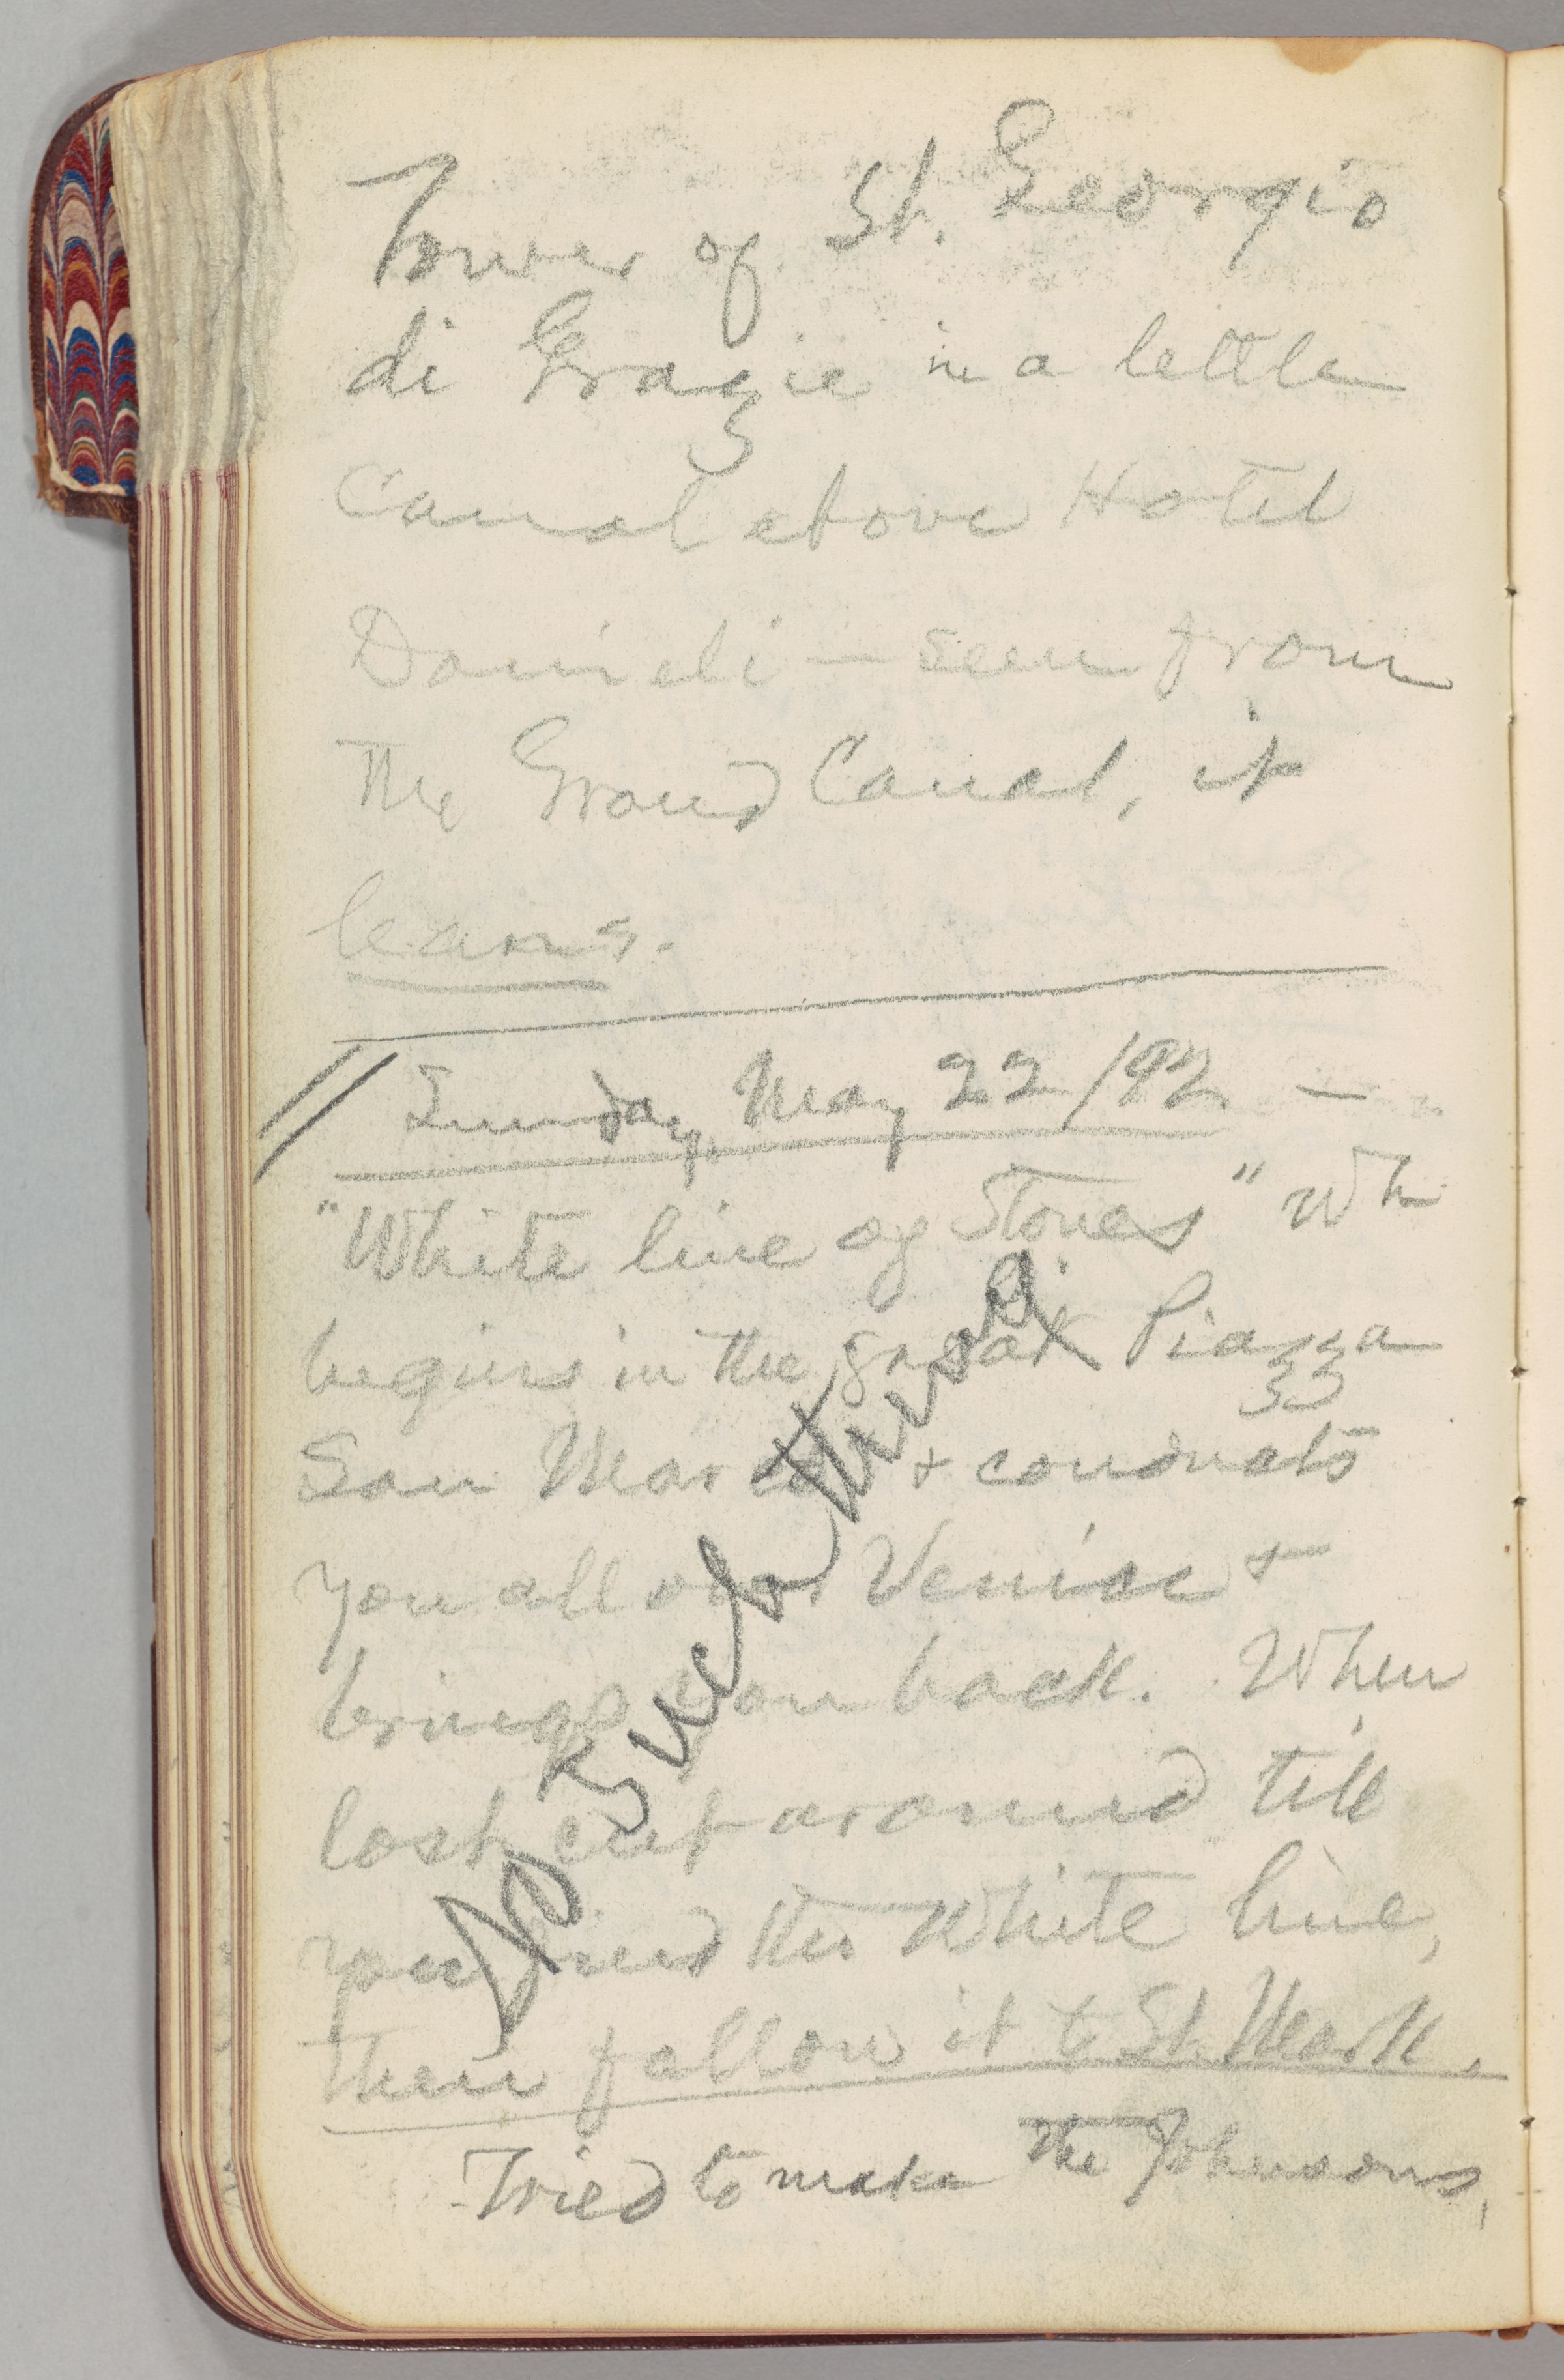 Tower of St. Georgio
di Grazie in a little
Canal above Hotel
Danieli — seen from
the Grand Canal, it
leans.
Sunday, May 22/92 —
"White line of Stones" wh
begins in the great Piazza
San Marco & conducts
you all over Venice &
brings you back. When
lost cut around till
you find the White line,
then follow it to St. Mark.
Tried to make the Johnsons,